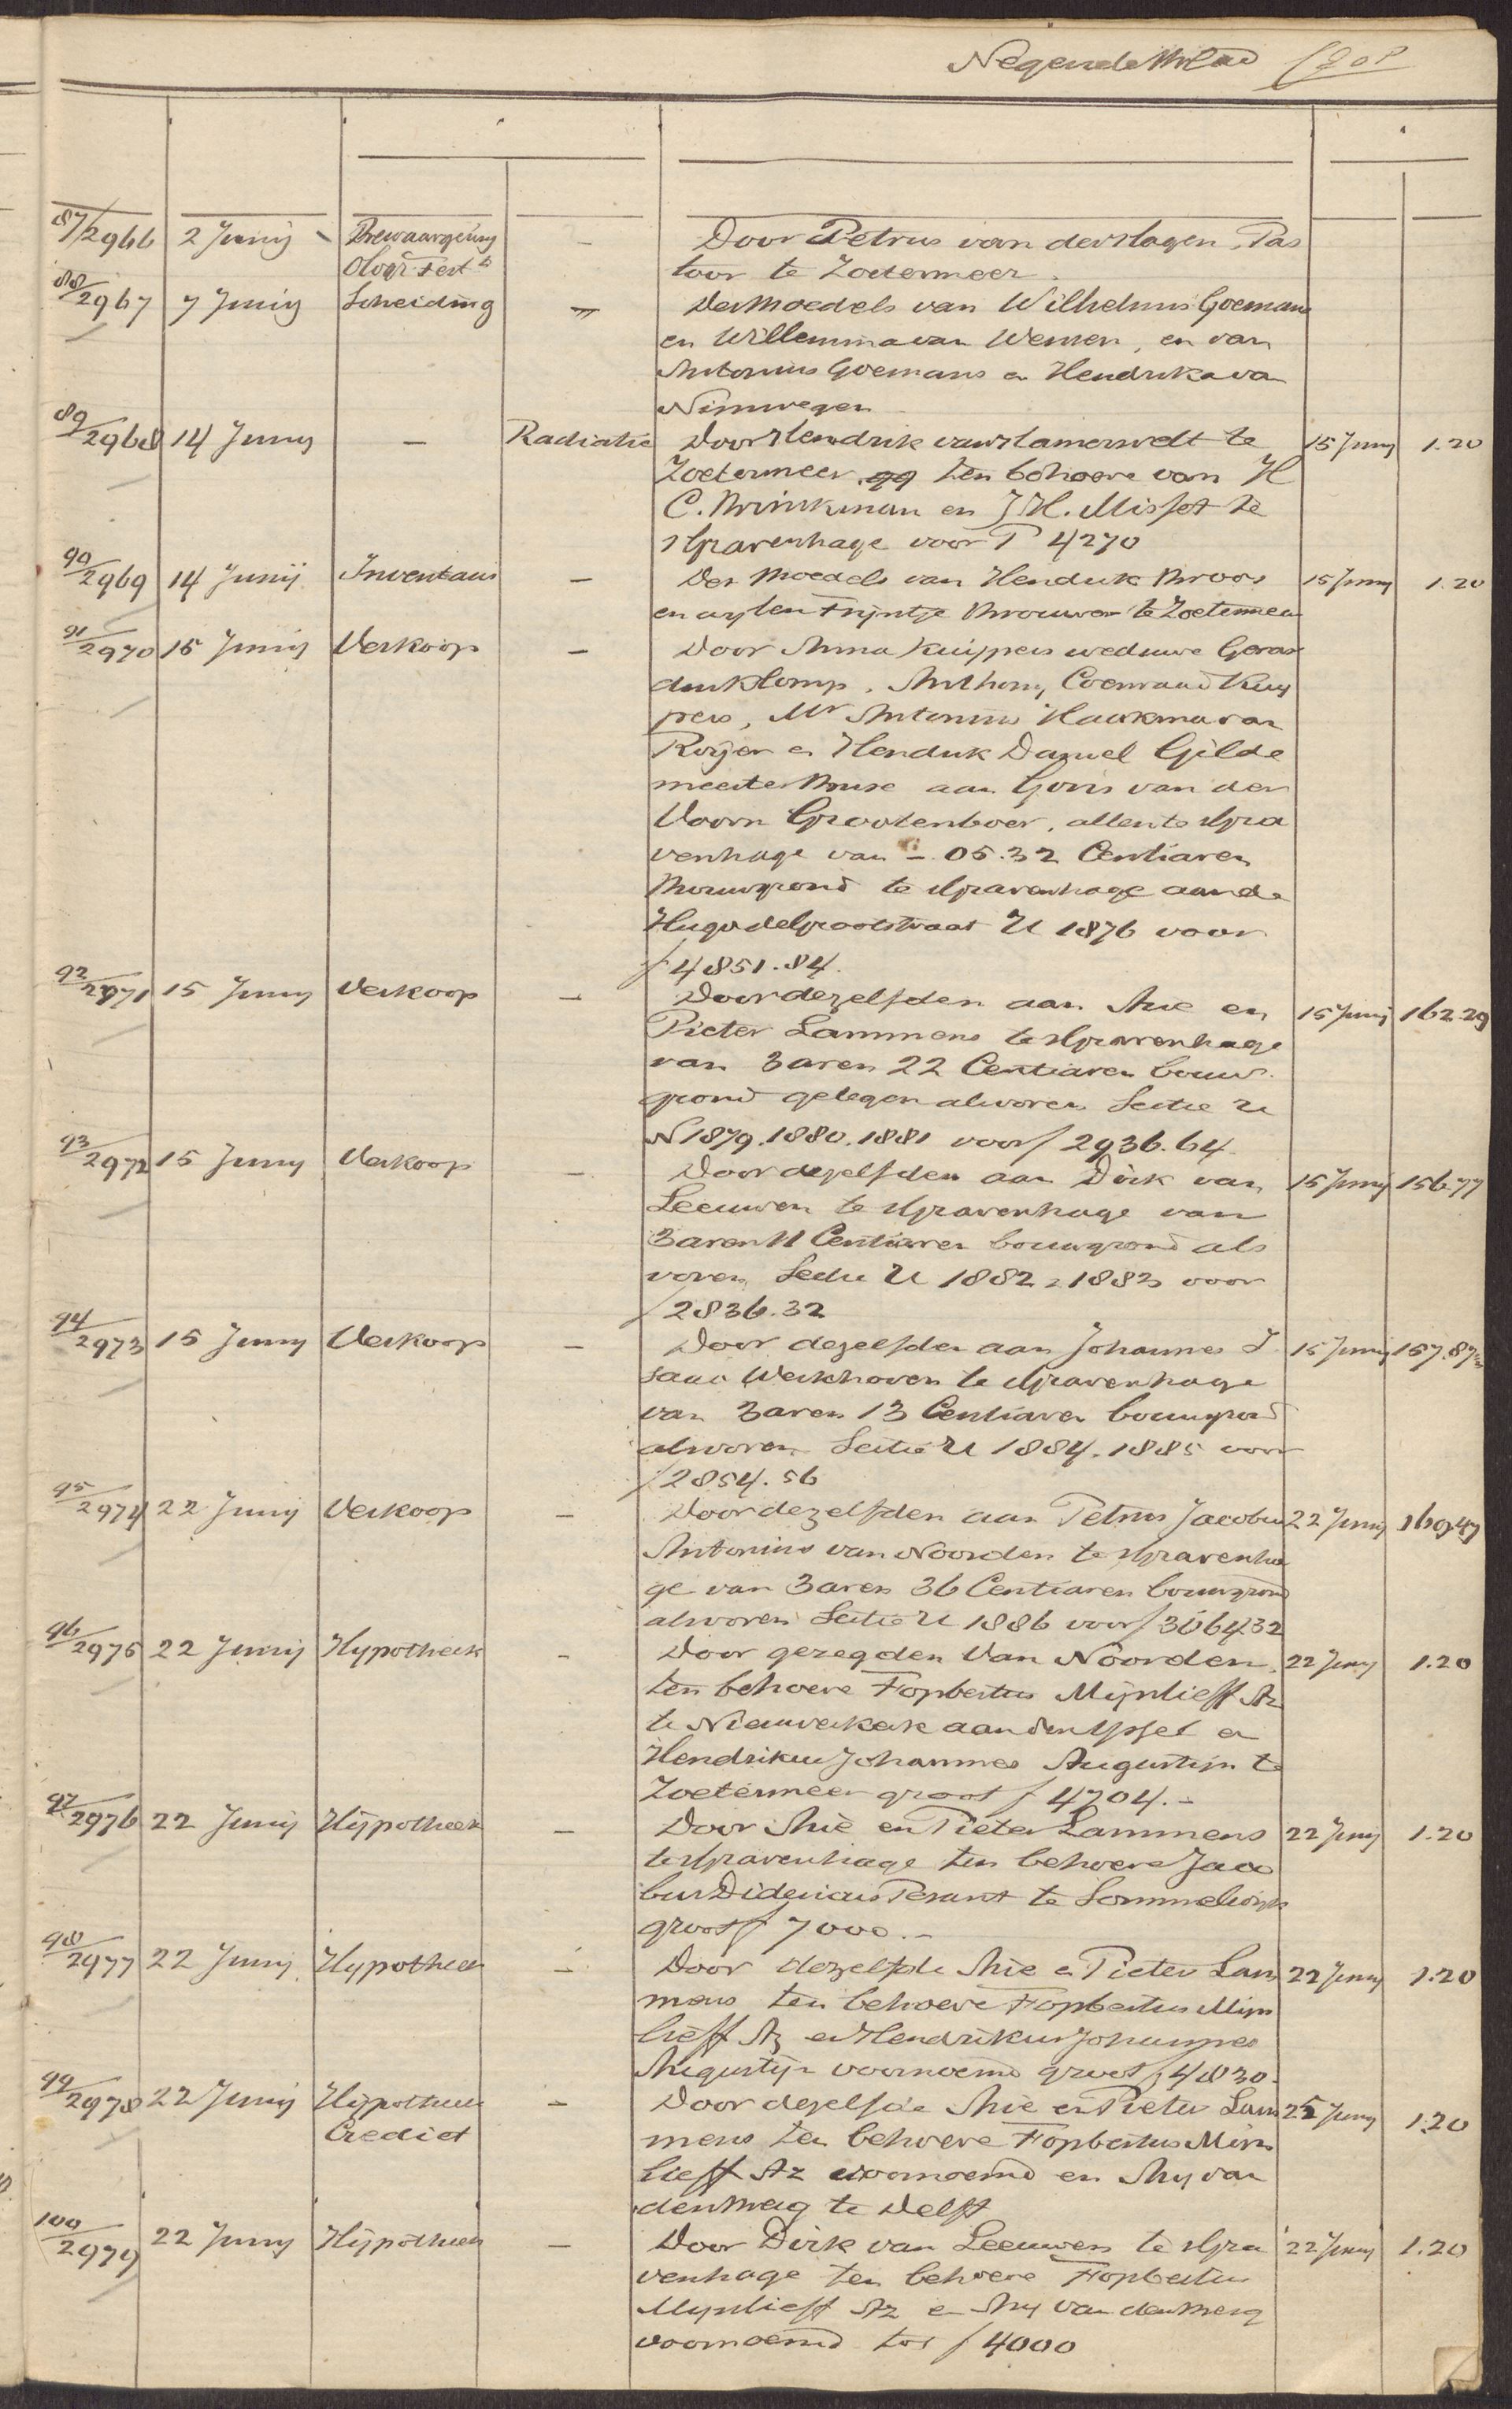 Negende Blad
87/2966 2 Junij Bewaargeving - Door Petrus van der Hagen, Pas
Ologr. Test toor te Zoetermeer.
88/2967 7 Junij Scheiding - Des boedels van Wilhelmus Goemans
en Willemina van Wensen, en van
Antonius Goemans en Hendrika van
Nimwegen
89/2968 14 Junij - Radiatie Door Hendrik van Hamerveldt te 15 Junij 1.20
Zoetermeer qq ten behoeve van H
C. Brinkman en J H. Misset te
sGravenhage voor f 4270
90/2969 14 Junij Inventaris - Des boedels van Hendrik Broos 15 Junij 1.20
en wijlen Trijntje Brouwer te Zoetermeer
91/2970 15 Junij Verkoop - Door Anna Kuijpers weduwe Gerar
dus Klomp, Anthony Coenraad Kuy
pers, Mr Antonius Haakma van
Roijen en Hendrik Daniel Gilde
meester Buse aan Goris van der
Voorn Grootenboer, allen te sGra
venhage van - 05.32 Centiaren
Bouwgrond te sGravenhage aan de
Hugo de Grootstraat U 1876 voor
f 4851.84.
92/2971 15 Junij Verkoop - Door dezelfden aan Arie en 15 Junij 162.29
Pieter Lammens te sGravenhage
van 3 aren 22 Centiaren bouw-
grond gelegen alvoren Sectie U
N 1879.1880.1881 voor f 2936.64.
93/2972 15 Junij Verkoop - Door dezelfden aan Dirk van 15 Junij 156.77
Leeuwen te sGravenhage van
3 aren 11 Centiaren bouwgrond als
voren Sectie U 1882, 1883 voor
f 2836.32
94/2973 15 Junij Verkoop - Door dezelfden aan Johannes I 15 Junij 157.87
saac Werkhoven te sGravenhage
van 3 aren 13 Centiaren bouwgrond
alvoren Sectie U 1884. 1885 voor
f 2854.56
95/2974 22 Junij Verkoop - Door dezelfden aan Petrus Jacobus 22 Junij 169.47
Antonius van Noorden te sGravenha
ge van 3 aren 36 Centiaren bouwgrond
alvoren Sectie U 1886 voor f 3064.32
96/2975 22 Junij Hypotheek - Door gezegden Van Noorden 22 Junij 1.20
ten behoeve Fopbertus Mijnlieff Az
te Nieuwerkerk aan den IJssel en
Hendrikus Johannes Augustijn te
Zoetermeer groot f 4704.-
97/2976 22 Junij Hijpotheek - Door Arie en Pieter Lammens 22 Junij 1.20
te sGravenhage ten behoeve Jaco
bus Didericus te Sommelsdijk
groot f 7000.-
98/2977 22 Junij Hypotheek - Door dezelfde Arie en Pieter Lam 22 Junij 1.20
mens ten behoeve Fopbertus Mijn
lieff Az en Hendrikus Johannes
Augustijn voornoemd groot f 4830.
99/2978 22 Junij Hijpotheek - Door dezelfde Arie en Pieter Lam 22 Junij 1.20
Crediet mens ten behoeve Fopbertus Mijn
lieff Az voornoemd en Ary van
den Berg te Delft
100/2979 22 Junij Hijpotheek - Door Dirk van Leeuwen te sGra 22 Junij 1.20
venhage ten behoeve Fopbertus
Mijnlieff Az en Ary van den Berg
voornoemd tot f 4000